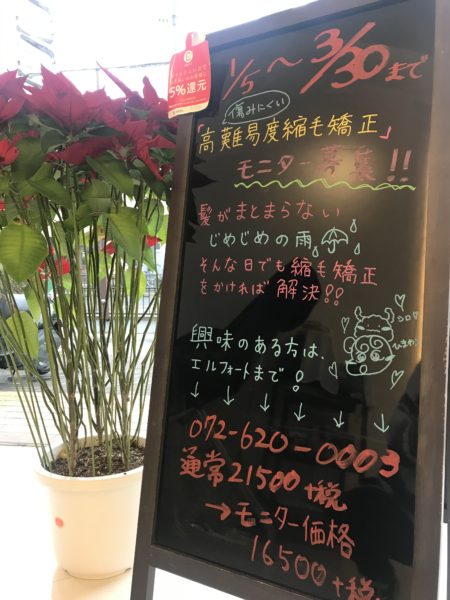 5%還元
1/5〜3/30まで
傷みにくい
「高難易度縮毛矯正」
モニター募集!!
髪がまとまらない
じめじめの雨
そんな日でも縮毛矯正
をかければ解決!!
シロ
ひまわり
興味のある方は、
エルフォートまで!
↓ ↓ ↓ ↓ ↓ ↓
072-620-0003
通常21500+税
→モニター価格
16500+税